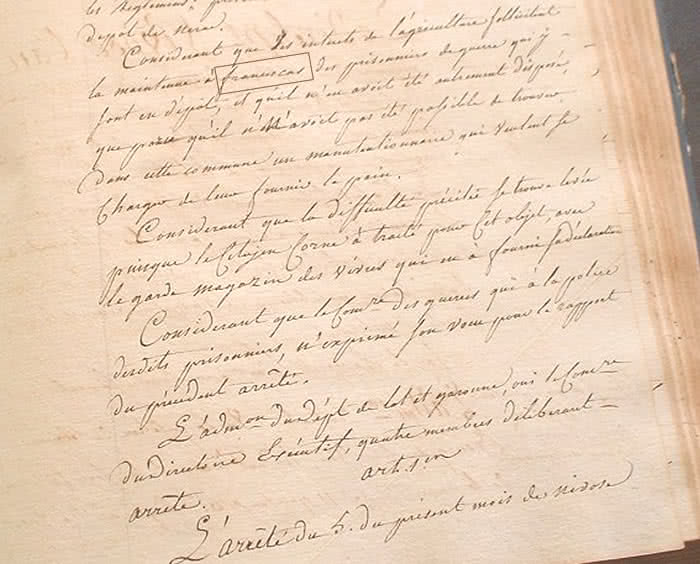 les reglemens,
depot de Nerac.
Considerant que des interets de l'agriculture sollicitent
la maintenue à francescas des prisonniers de guerre qui y
sont en dépôt, et qu'il n'en avoit été autrement disposé,
que parce qu'il n'avoit pas été possible de trouver
dans cette commune un manutentionnaire qui voulut se
Charger de leur fournir le pain.
Considerant que la difficulté précitée se trouve levée
puisque le Citoyen Corne à traité pour Cet objet, avec
le garde magazin des vivres qui en à fourni sa déclaration
Considerant que le Com.re des guerres qui à la police
desdits prisonniers, n'exprimé son vœu pour le rapport
du précédent arrêté.
L'adm.on du dép.t de Lot et garonne, oui le Com.re
du directoire Exécutif, quatre membres déliberant
arrête.
art. 1.er
L'arrêté du 5. du présent mois de nivose